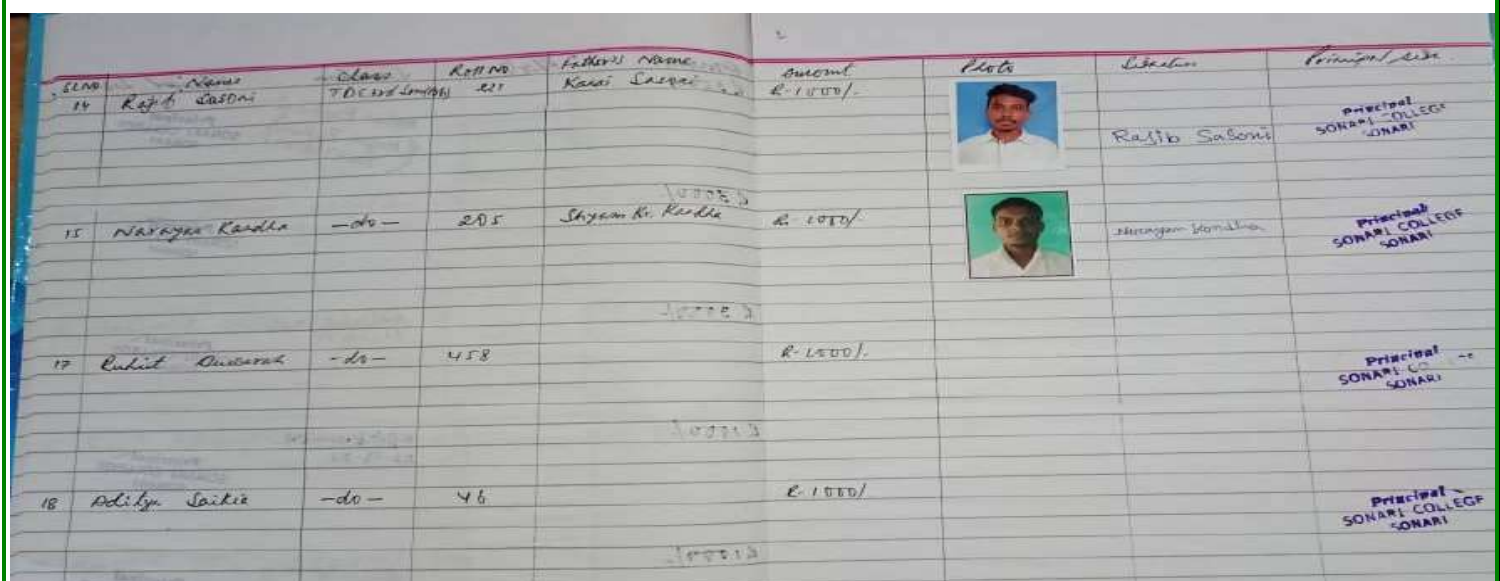 SL NO Name Class Roll NO Father's Name Amount Photo Principal
14 Rajib Sasoni TDC Karai Sasoni R-1000/-
Rajib Sasoni
Principal
SONARI COLLEGE
SONARI
15 Narayan Kandha —do— 205 Shyam Kr. Kandha R-1000/-
Narayan Kandha
Principal
SONARI COLLEGE
SONARI
17 Ruhit -do- 458 R-1000/-
Principal
SONARI CO
SONARI
18 Aditya Saikia —do— 46 R-1000/
Principal
SONARI COLLEGE
SONARI